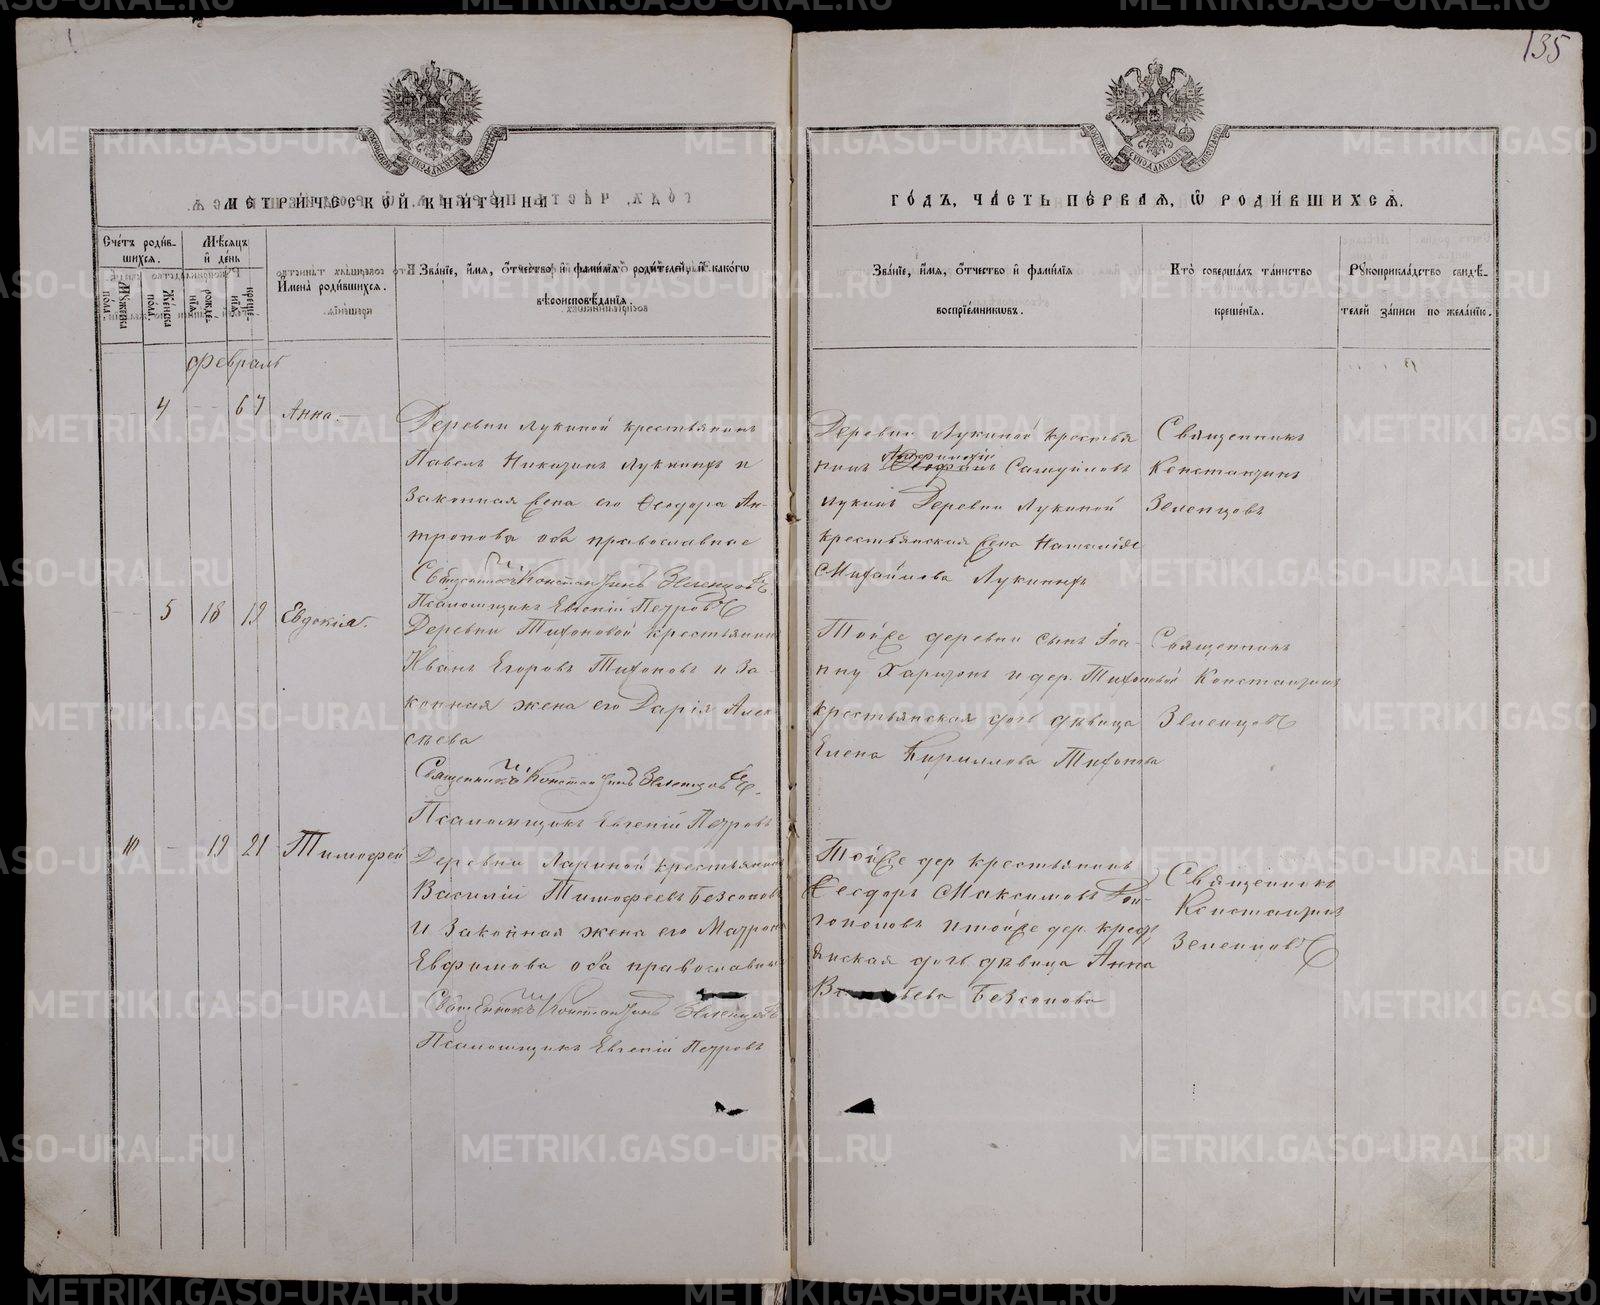 135
МЕТРИЧЕСКОЙ КНИГИ НА
ГОДЪ, ЧАСТЬ ПЕРВАЯ, Ѡ РОДИВШИХСЯ.
Счетъ родив-
шихся.
Мѣсяцъ
и день
Мужеска
пола.
Женска
пола.
рожде-
нія.
креще-
нія.
Имена родившихся.
Званіе, имя, отчество и фамилія родителей, и какого
вѣроисповѣданія.
Званіе, имя, отчество и фамилія
воспріемниковъ.
Кто совершалъ таинство
крещенія.
Рукоприкладство свидѣ-
телей записи по желанію.
Февраль
4 6 7 Анна.
Деревни Лукиной крестьянинъ
Павелъ Никитинъ Лукинъ и
Законная Жена его Ѳеодора Ан-
тропова оба православные
Священникъ Константинъ Зеленцовъ
Псаломщикъ Евгеній Петровъ
Деревни Лукиной крестья
нинъ Самуиловъ
Лукинъ Деревни Лукиной
крестьянская Жена Наталія
Михайлова Лукиныхъ
Священникъ
Константинъ
Зеленцовъ
5 18 19 Евдокія.
Деревни Тихоновой крестьянинъ
Иванъ Егоровъ Тихоновъ и За
конная жена его Дарія Алек
сѣева
Священникъ Константинъ Зеленцовъ
Псаломщикъ Евгеній Петровъ
Тойже деревни сынъ Іоа-
нну Харитонъ и дер. Тихоновой
крестьянская дочь дѣвица
Елена Кириллова Тихонова
Священникъ
Константинъ
Зеленцовъ
10 - 19 21 Тимофей
Деревни Лариной крестьянинъ
Василій Тимофеевъ Безсоновъ
и Законная жена его Матрона
Евфимова оба православные
Священникъ Константинъ Зеленцовъ
Псаломщикъ Евгеній Петровъ
Тойже дер крестьянинъ
Ѳеодоръ Максимовъ
и тойже дер. крест
янская дочь дѣвица Анна
Безсонова
Священникъ
Константинъ
Зеленцовъ
METRIKI.GASO-URAL.RU